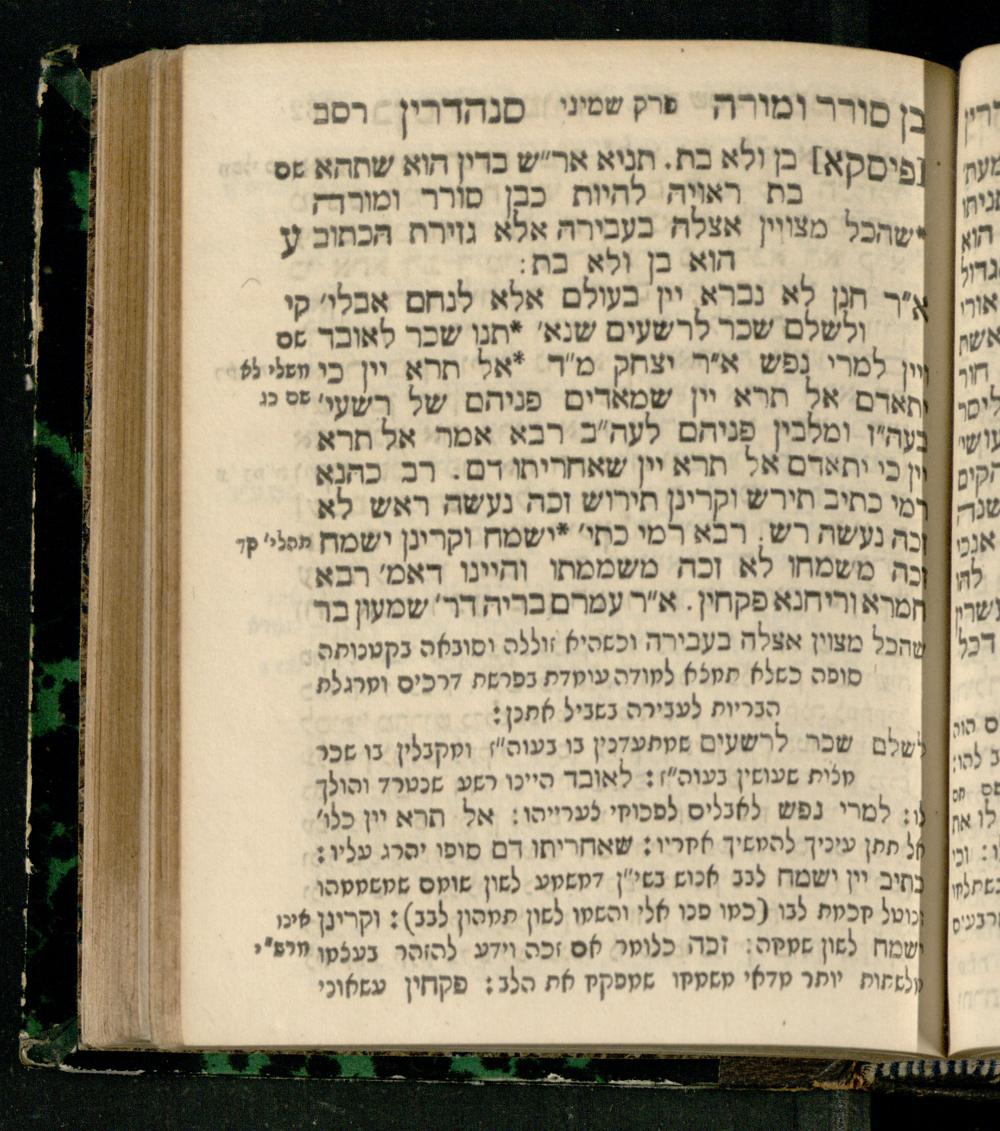 בן סורר ומורה פרק שמיני סנהדרין רסב
[פיסקא] בן ולא בת. תניא אר״ש בדין הוא שתהא שם
בת ראויה להיות כבן סורר ומורה
*שהכל מצויין אצלה בעבירה אלא גזירת הכתוב ע
הוא בן ולא בת:
א״ר חנן לא נברא יין בעולם אלא לנחם אבלי׳ קי
ולשלם שכר לרשעים שנא׳ *תנו שכר לאובד שם
ויין למרי נפש א״ר יצחק מ״ד *אל תרא יין כי משלי לא
יתאדם אל תרא יין שמאדים פניהם של רשעי׳ שם כג
בעה״ז ומלבין פניהם לעה״ב רבא אמר אל תרא
יין כי יתאדם אל תרא יין שאחריתו דם. רב כהנא
רמי כתיב תירש וקרינן תירוש זכה נעשה ראש לא
זכה נעשה רש. רבא רמי כתי׳ *ישמח וקרינן ישמח תהלי׳ קד
זכה משמחו לא זכה משממתו והיינו דאמ׳ רבא
חמרא וריחנא פקחין. א״ר עמרם בריה דר׳ שמעון בר
שהכל מצוין אצלה בעבירה וכשהיא זוללה וסובאה בקטנותה
סופה כשלא תמלא למודה עומדת בפרשת דרכים ומרגלת
הבריות לעבירה בשביל אתנן:
לשלם שכר לרשעים שמתעדנין בו בעוה״ז ומקבלין בו שכר
מצות שעושין בעוה״ז: לאובד היינו רשע שנטרד והולך
לו: למרי נפש לאבלים לפכוחי לצערייהו: אל תרא יין כלו׳
אל תתן עיניך להמשיך אחריו: שאחריתו דם סופו יהרג עליו:
כתיב יין ישמח לבב אנוש בשי״ן דמשמע לשון שומם שמשממהו
ונוטל חכמת לבו (כמו פנו אלי והשמו לשון תמהון לבב): וקרינן אינו
ישמח לשון שמחה: זכה כלומר אם זכה וידע להזהר בעצמו מרש״י
מלשתות יותר מדאי משמחו שמפקח את הלב: פקחין עשאוני